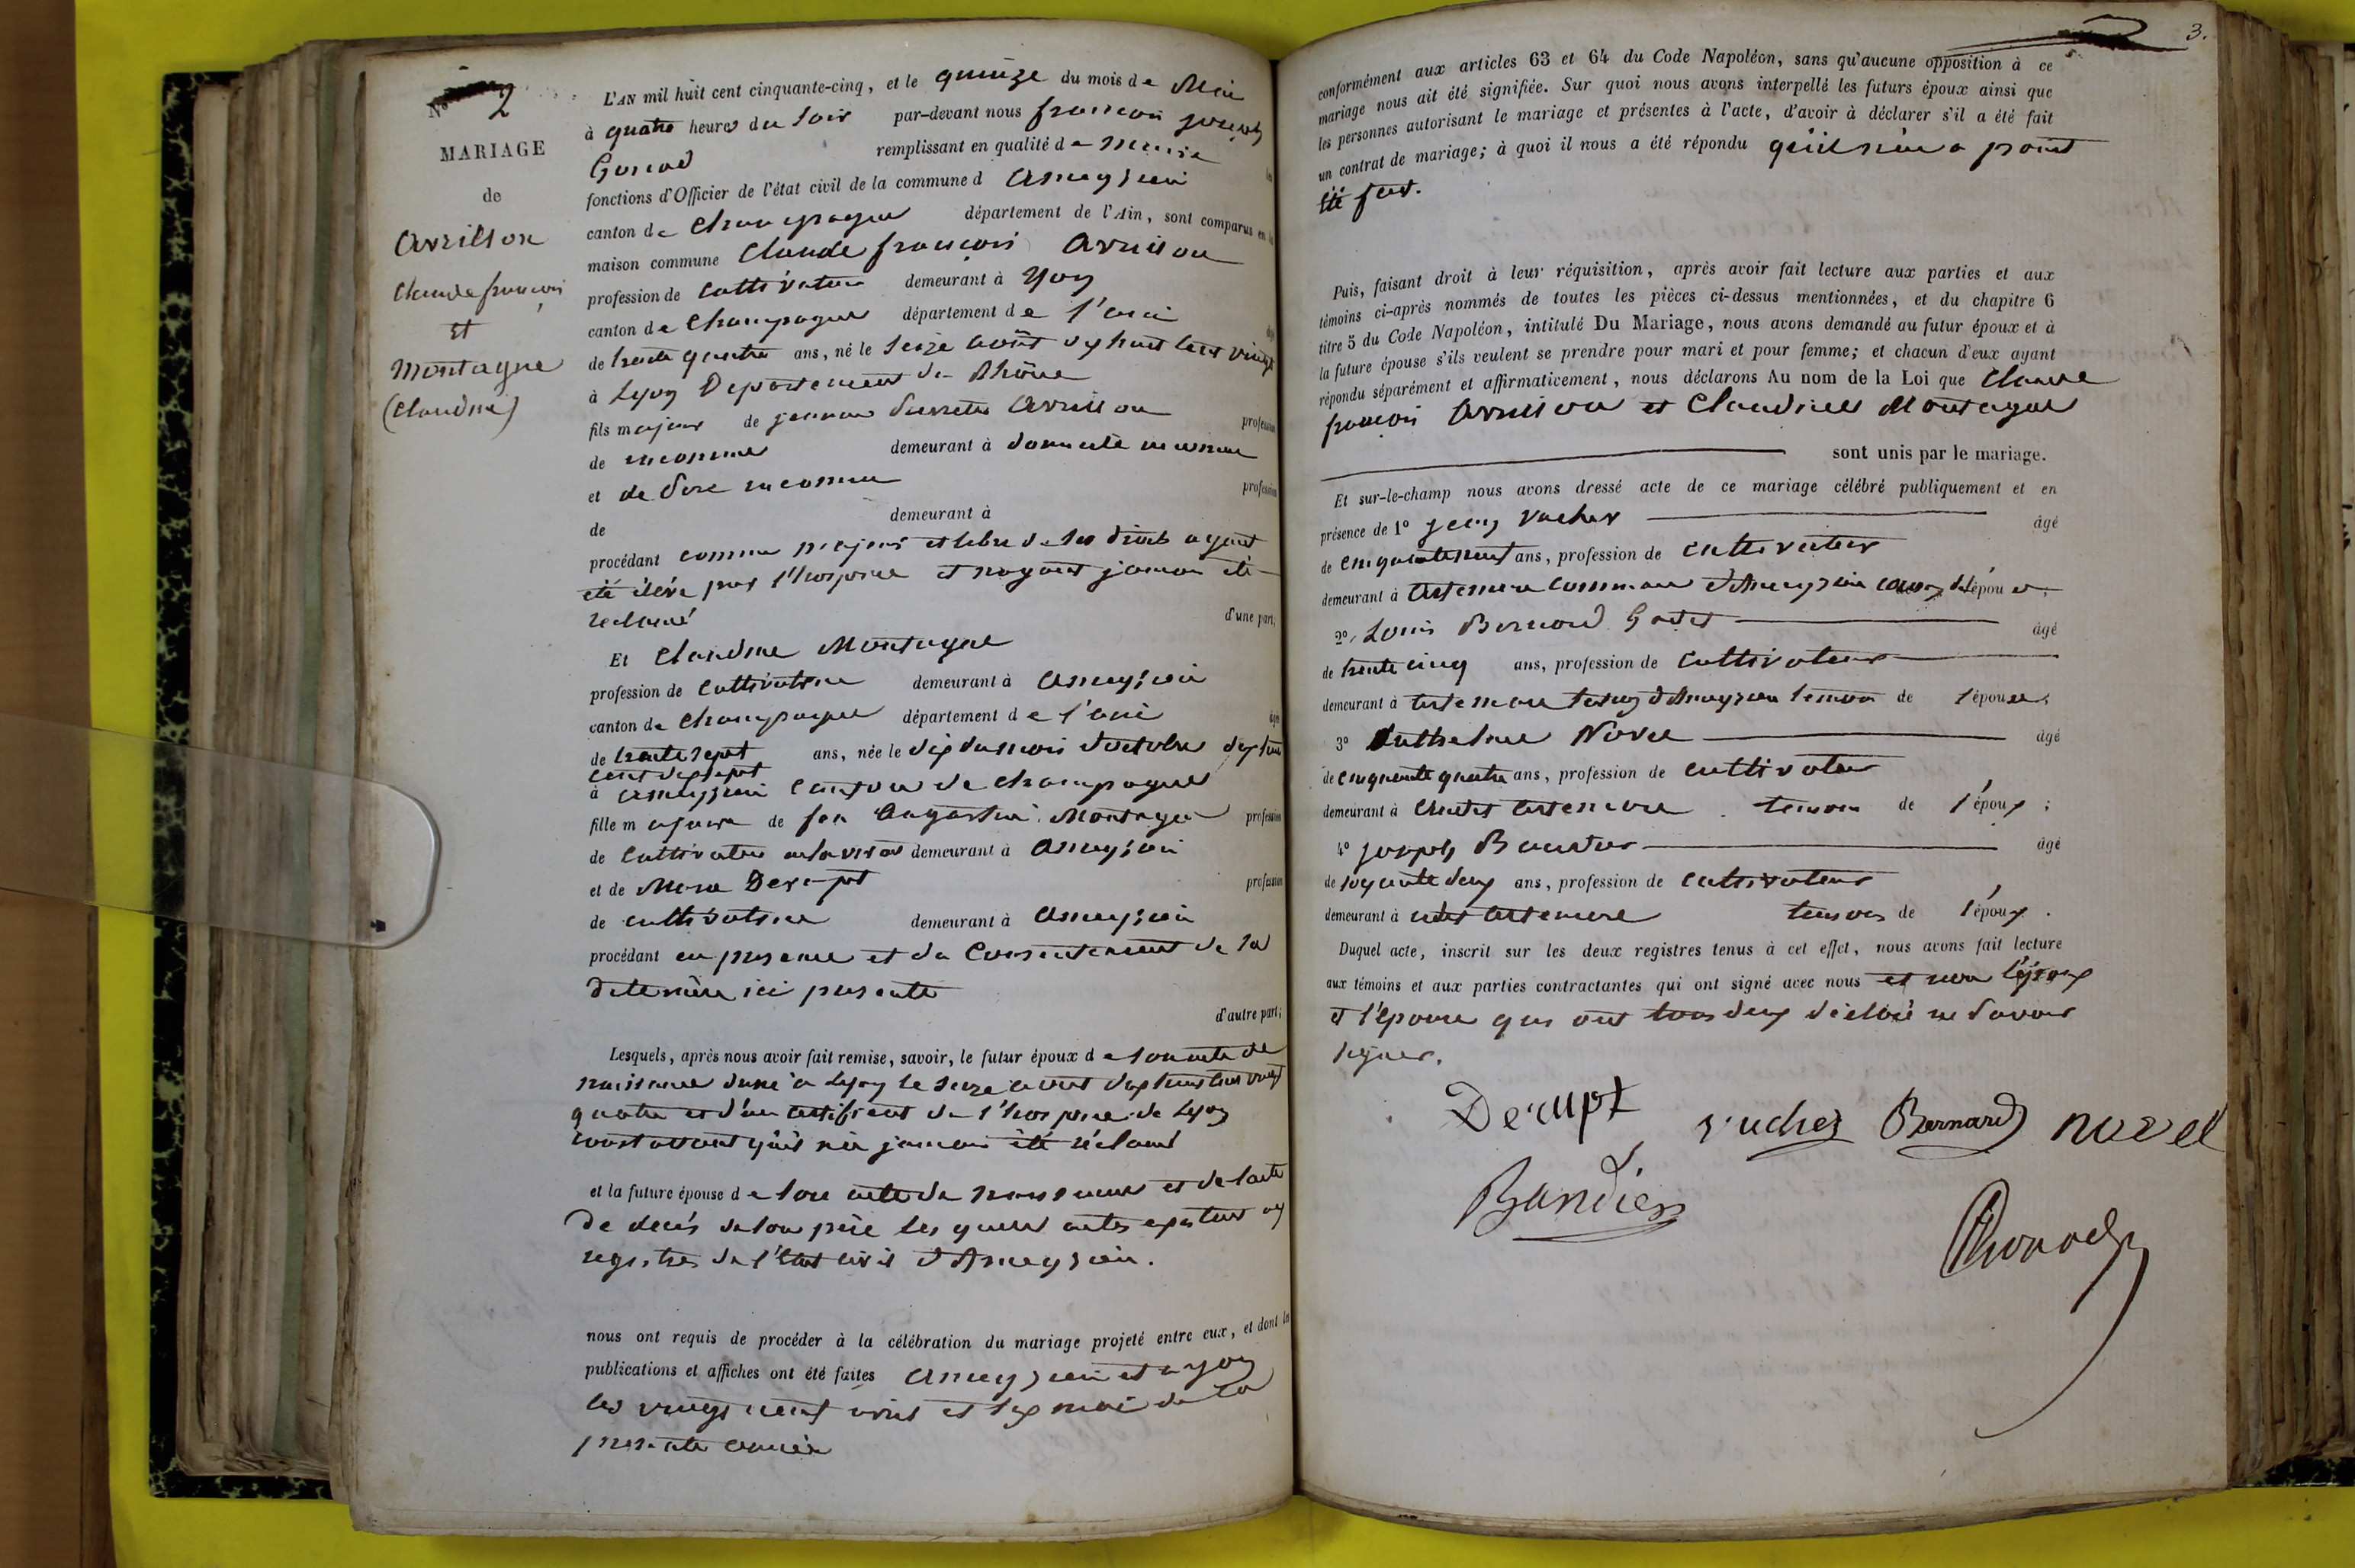 N° 2
MARIAGE
de
Arrilson
Claude françois
et
Montagne
(Claudine)
L'AN mil huit cent cinquante-cinq, et le quinze du mois de Mai
à quatre heures du soir par-devant nous françois joseph
remplissant en qualité de Maire
fonctions d'Officier de l'état civil de la commune d Ameyzieu
canton de Champagne département de l'Ain, sont comparus en
maison commune Claude françois
profession de Cultivateur demeurant à Yon
canton de Champagne département de l'ain
de trente quatre ans, né le seize août dix huit cent vingt
à Lyon Département du Rhône
fils majeur de profession
de inconnue demeurant à domicile inconnu
et de père inconnu profession
de demeurant à
procédant comme majeur et libre de ses droits ayant
été élevé par l'hospice et n'ayant jamais été
réclamé d'une part;
Et Claudine Montagne
profession de Cultivatrice demeurant à Ameyzieu
canton de Champagne département de l'ain
de trente sept ans, née le dix du mois d'octobre dix huit
cent dix sept
à ameyzieu canton de champagne
fille majeure de feu Augustin Montagne profession
de Cultivateur demeurant à Ameyzieu
et de Marie Derupt profession
de cultivatrice demeurant à Ameyzieu
procédant en presence et du Consentement de sa
dite mère ici presente
d'autre part;
Lesquels, après nous avoir fait remise, savoir, le futur époux de son acte de
naissance à Lyon le seize août dix huit cent vingt
quatre et d'un certificat de l'hospice de Lyon
constatant qu'il n'a jamais été réclamé
et la future épouse de son acte de naissance et de l'acte
de decès de son père les quels actes aux
registres de l'état civil d'Ameyzieu.
nous ont requis de procéder à la célébration du mariage projeté entre eux, et dont les
publications et affiches ont été faites Ameyzieu et a yon
les vingt neuf avril et six mai de la
presente année
3.
conformément aux articles 63 et 64 du Code Napoléon, sans qu'aucune opposition à ce
mariage nous ait été signifiée. Sur quoi nous avons interpellé les futurs époux ainsi que
les personnes autorisant le mariage et présentes à l'acte, d'avoir à déclarer s'il a été fait
un contrat de mariage; à quoi il nous a été répondu qu'il n'en a point
été fait.
Puis, faisant droit à leur réquisition, après avoir fait lecture aux parties et aux
témoins ci-après nommés de toutes les pièces ci-dessus mentionnées, et du chapitre 6
titre 5 du Code Napoléon, intitulé Du Mariage, nous avons demandé au futur époux et à
la future épouse s'ils veulent se prendre pour mari et pour femme; et chacun d'eux ayant
répondu séparément et affirmativement, nous déclarons Au nom de la Loi que Claude
françois et Claudine Montagne
sont unis par le mariage.
Et sur-le-champ nous avons dressé acte de ce mariage célébré publiquement et en
présence de 1° Vucher âgé
de cinquante neuf ans, profession de cultivateur
demeurant à Artemare commune d'Ameyzieu de l'épouse;
2° Louis Bernard âgé
de trente cinq ans, profession de Cultivateur
demeurant à artemare d'Ameyzieu témoin de l'épouse;
3° Anthelme Novel âgé
de cinquante quatre ans, profession de cultivateur
demeurant à artemare témoin de l'époux;
4° joseph âgé
de soixante deux ans, profession de cultivateur
demeurant à artemare témoin de l'époux.
Duquel acte, inscrit sur les deux registres tenus à cet effet, nous avons fait lecture
aux témoins et aux parties contractantes qui ont signé avec nous et non l'époux
et l'épouse qui ont tous deux déclaré ne savoir
signer.
Derupt vucher Bernard novel
Bandier